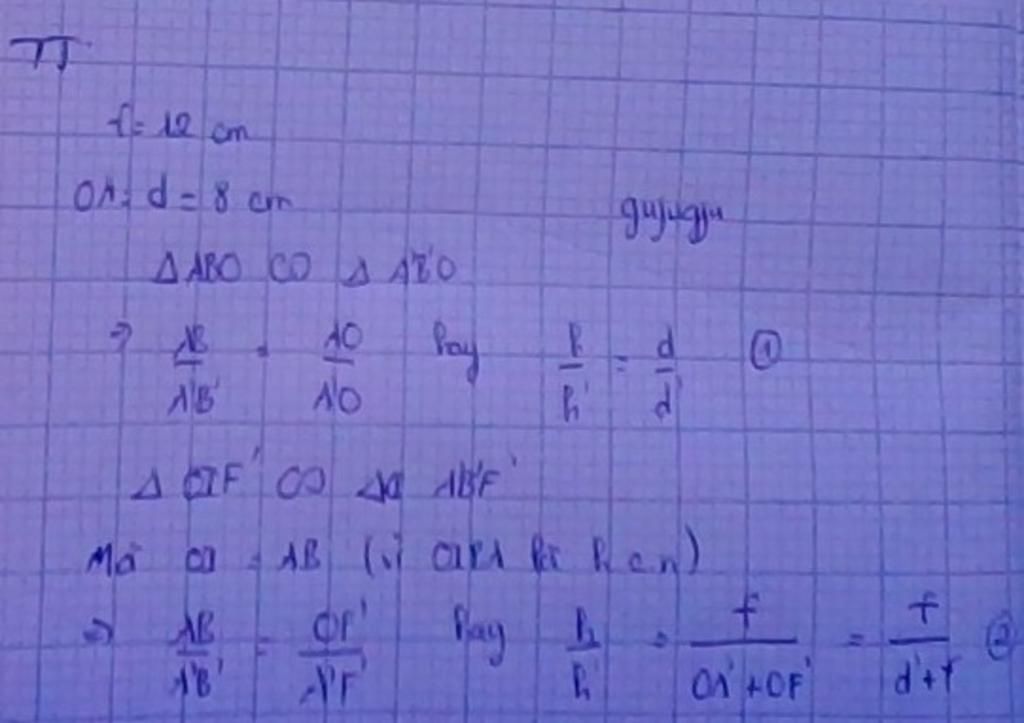 TT
f = 12 cm
OA = d = 8 cm
gujugju
Δ ABO ∽ Δ A'B'O
⇒ AB/A'B' = AO/A'O hay h/h' = d/d' ①
Δ OIF' ∽ Δ A'B'F'
Mà OI = AB (vì OIBA là h.c.n)
⇒ AB/A'B' = OF'/A'F' hay h/h' = f/OA'+OF' = f/d'+f ②